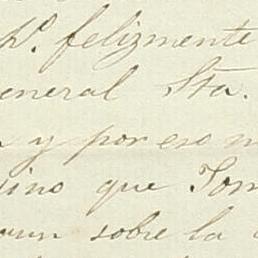 felizmente
eneral Sta.
y por eso
que Tom
sobre la